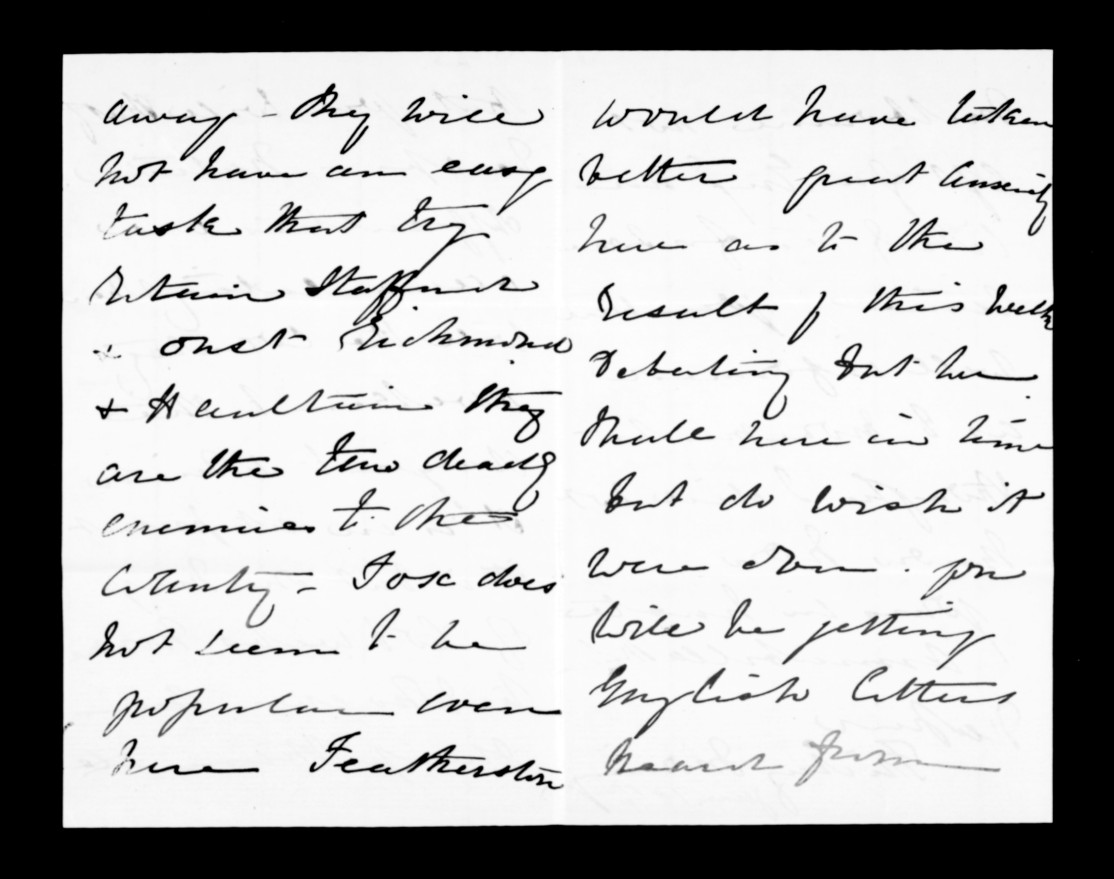 away - They will
not have an easy
task that try
retain Stafford
& oust Richmond
& Haultain they
are the two deadly
enemies to the
Country - Fox does
not seem to be
popular even
here Featherston
would have taken
better great anxiety
here as to the
result of this weeks
Debating but we
shall hear in time
but do wish it
were over. you
will be getting
English letters
heard from